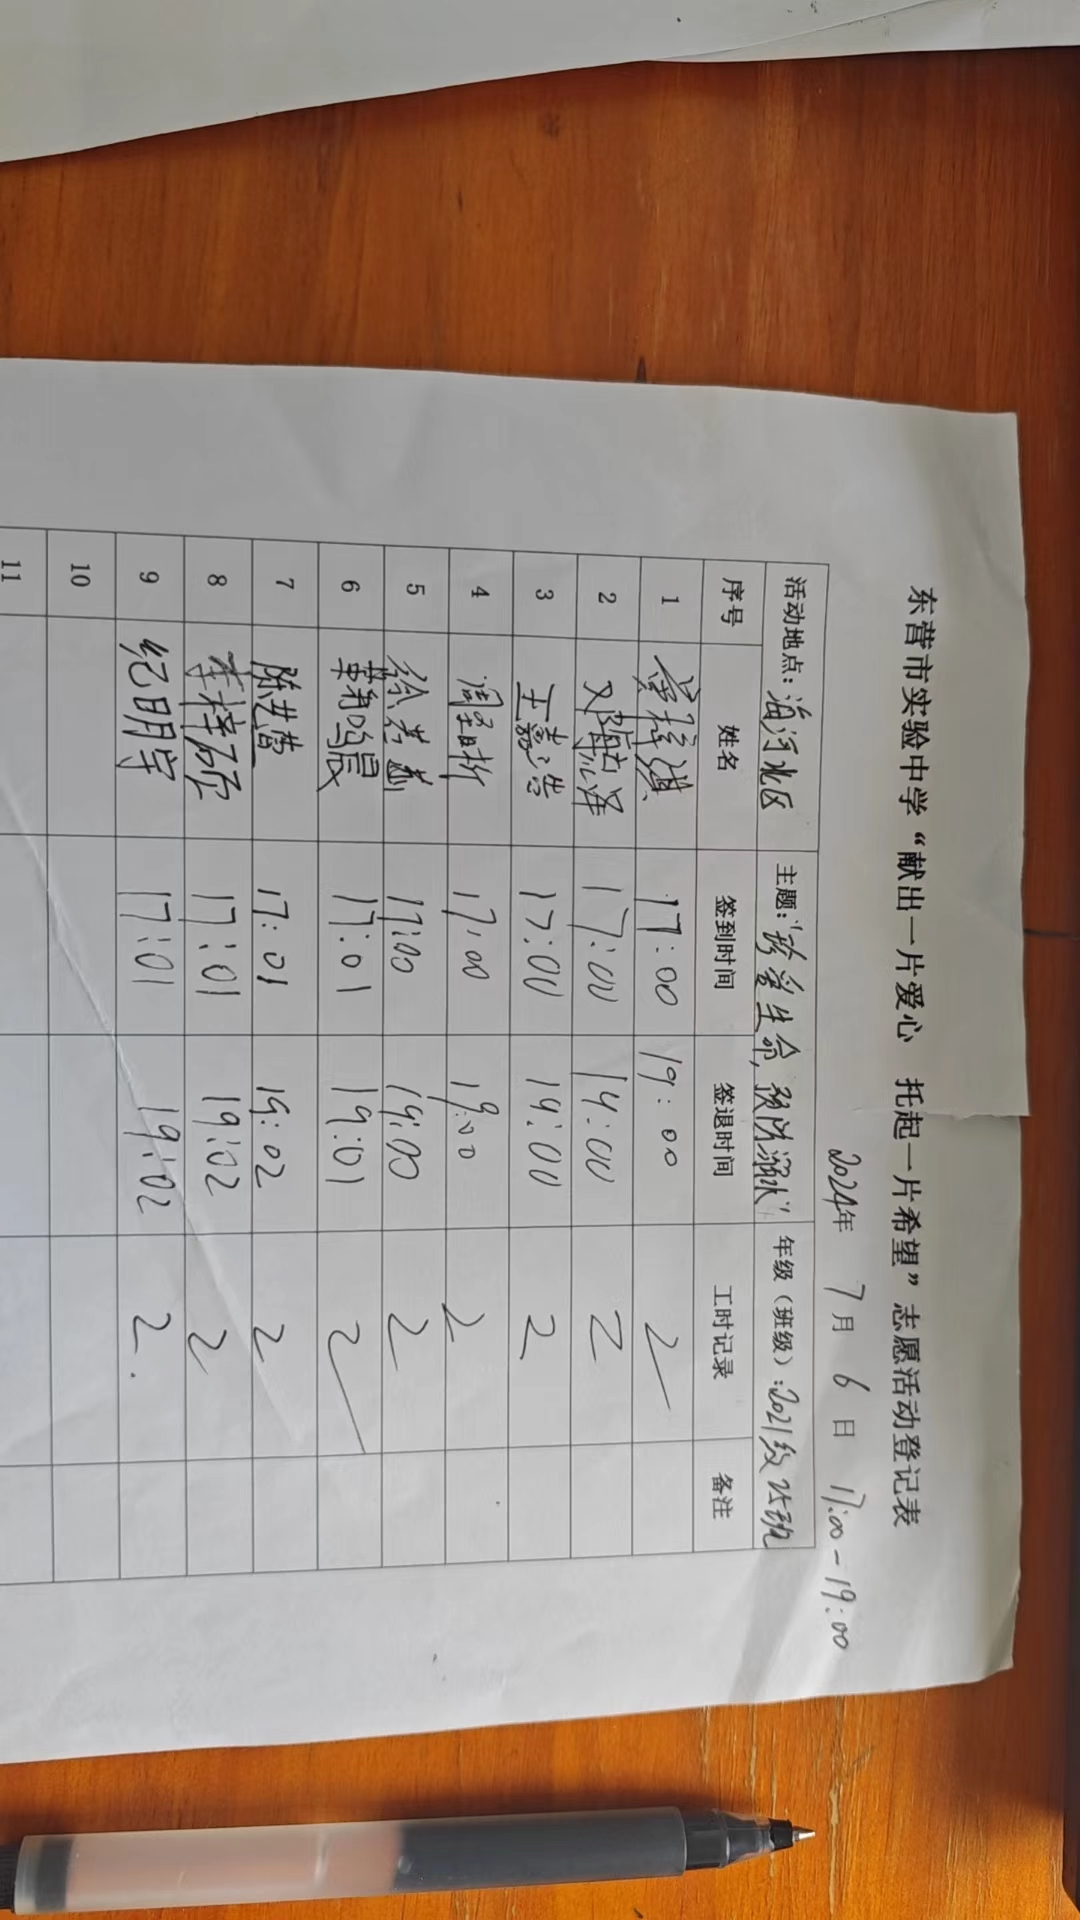 东营市实验中学“献出一片爱心 托起一片希望”志愿活动登记表
2024年 7月 6日 17:00-19:00
活动地点：海河北区 主题：“珍爱生命，预防溺水” 年级（班级）：2021级25班
序号 姓名 签到时间 签退时间 工时记录 备注
1 17:00 19:00 2
2 17:00 19:00 2
3 王嘉浩 17:00 19:00 2
4 17:00 19:00 2
5 17:00 19:00 2
6 17:01 19:01 2
7 17:01 19:02 2
8 李梓硕 17:01 19:02 2
9 纪明宇 17:01 19:02 2.
10
11